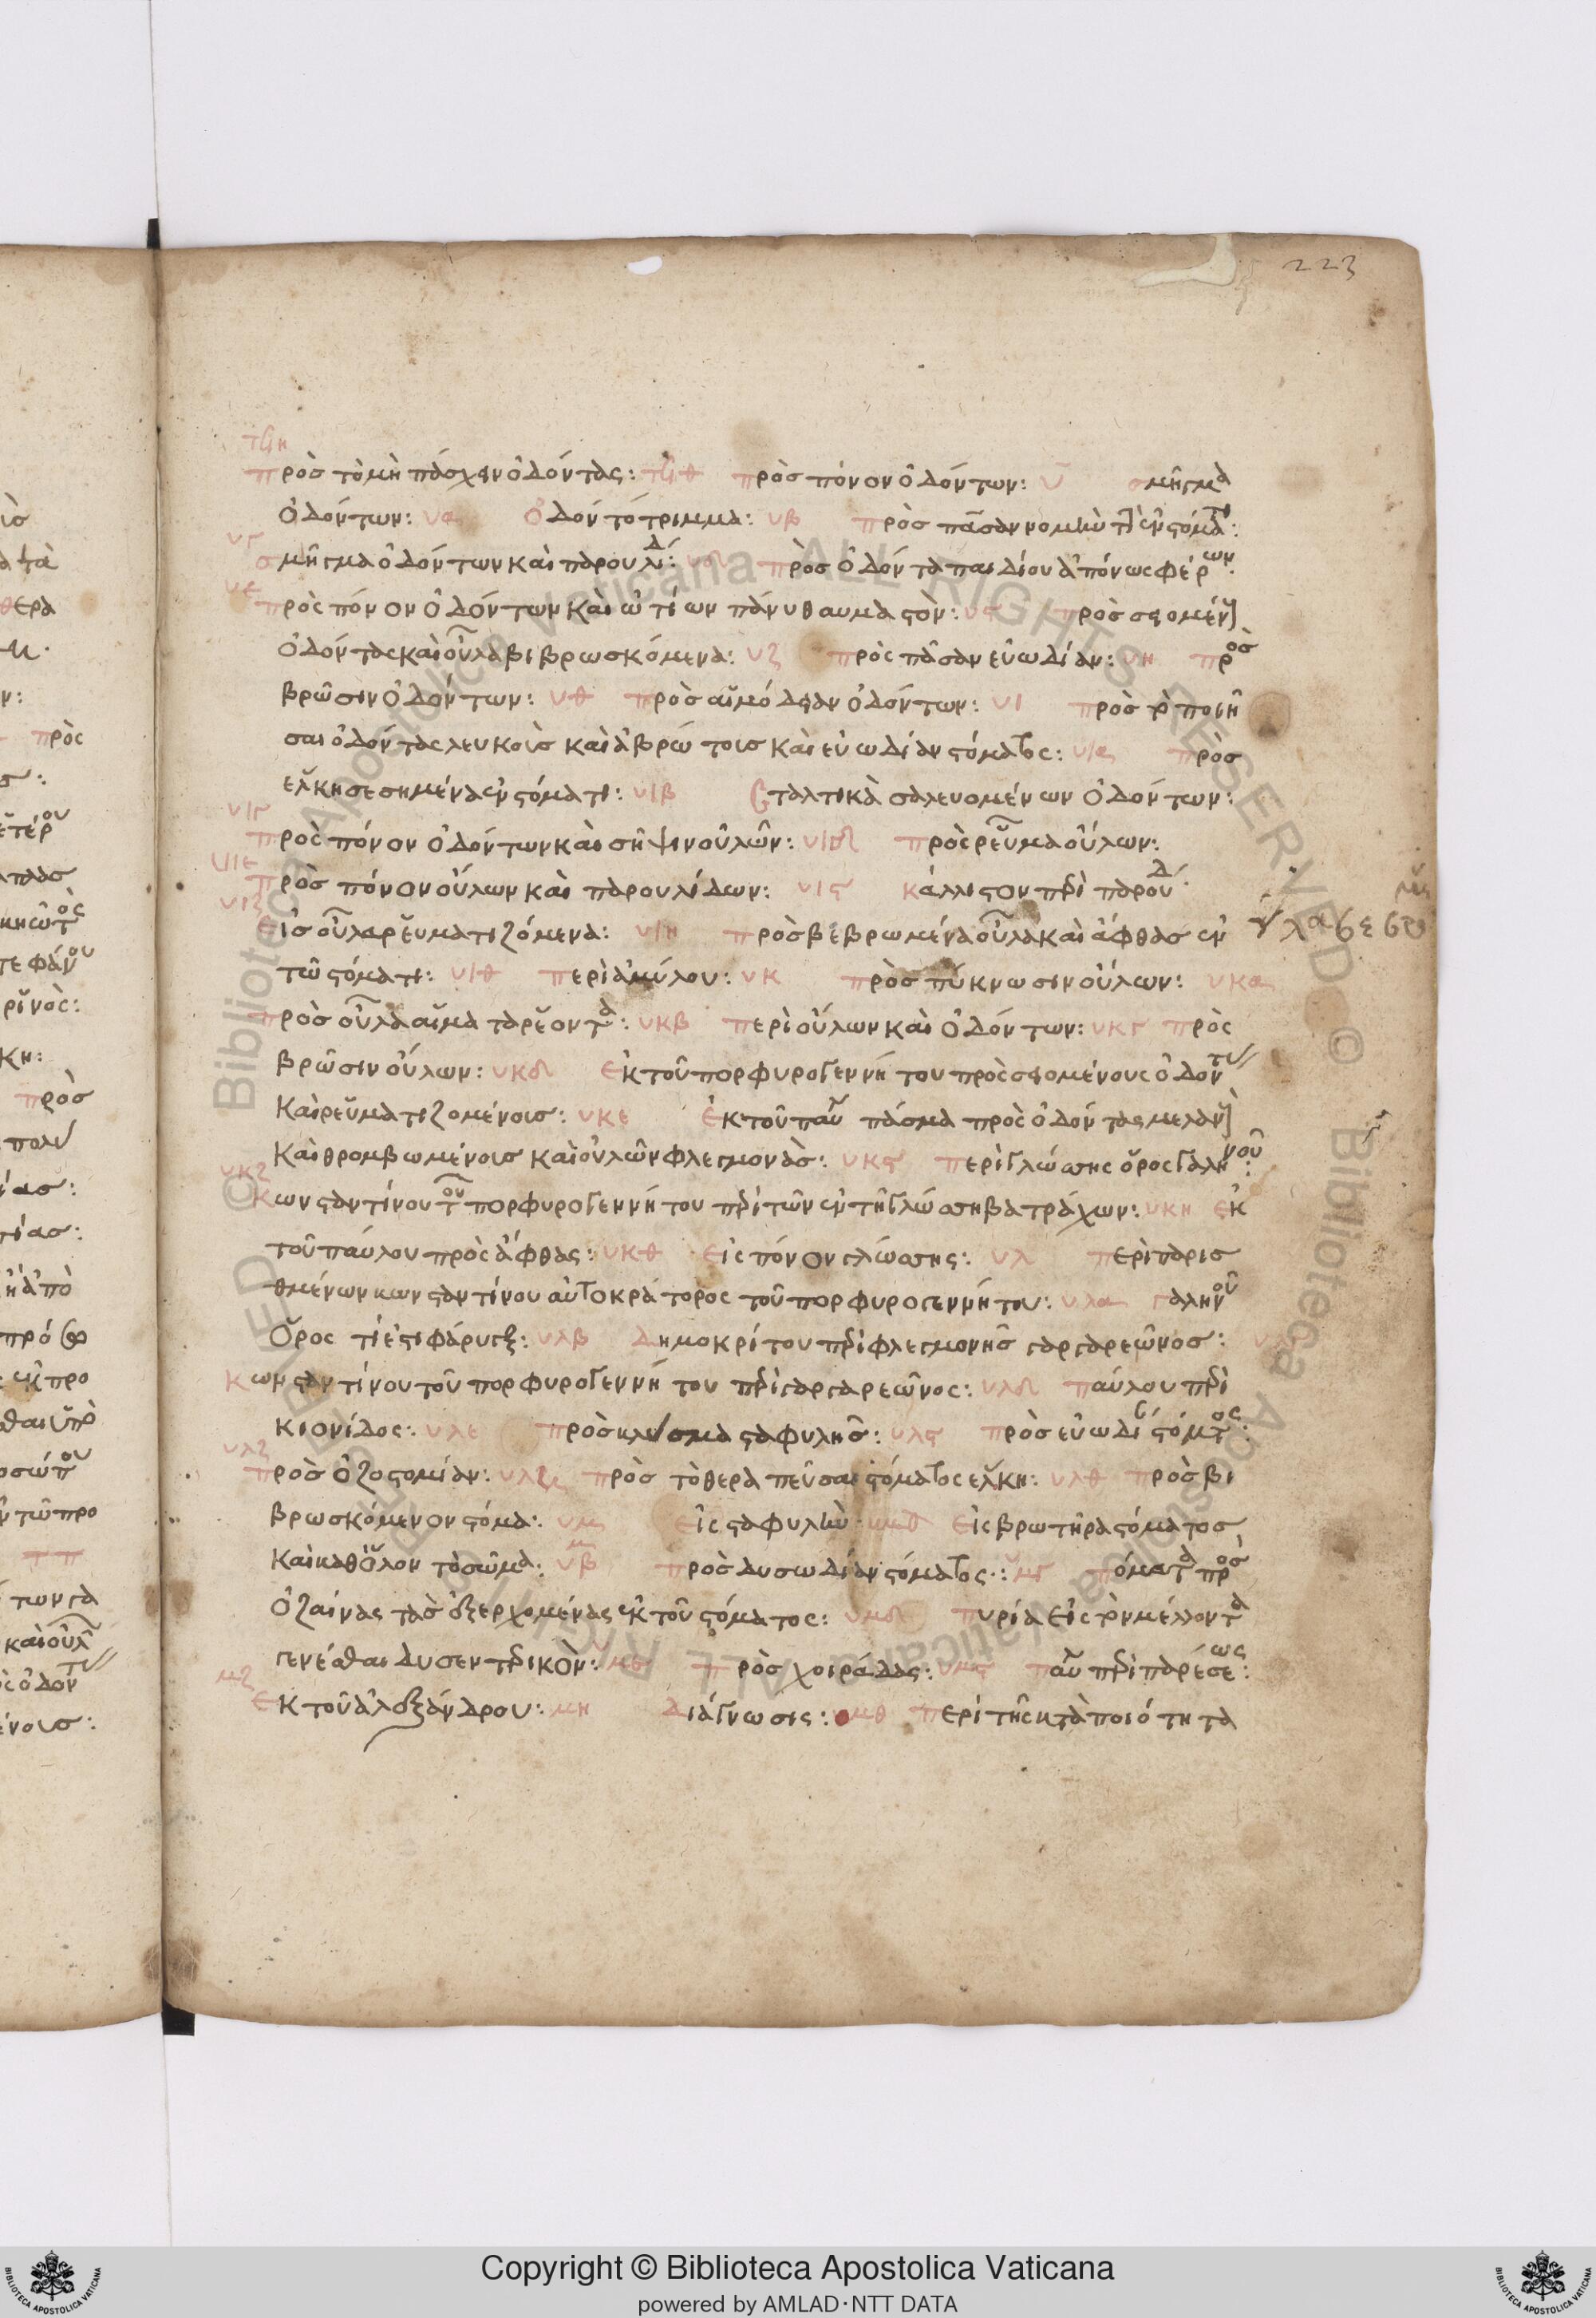 223
τϟη
πρὸς τὸ μὴ πάσχειν ὀδόντας: τϟθ πρὸς πόνον ὀδόντων: υ σμῆγμα
ὀδόντων: υα ὀδοντότριμμα: υβ πρὸς πᾶσαν νομὴν τὴν ἐν στόματι:
υγ
σμῆγμα ὀδόντων καὶ παρουλίδ: υδ πρὸς ὀδόντα παιδίου ἀπόνως φέρων:
υε
πρὸς πόνον ὀδόντων καὶ ὠτίων πάνυ θαυμαστὸν: υς πρὸς σειομέν
ὀδόντας καὶ οὖλα βιβρωσκόμενα: υζ πρὸς πᾶσαν εὐωδίαν: υη πρὸς
βρῶσιν ὀδόντων: υθ πρὸς αἱμόδειαν ὀδόντων: υι πρὸς τὸ ποιῆ
σαι ὀδόντας λευκοὺς καὶ ἀβρώτους καὶ εὐωδίαν στόματος: υια πρὸς
ἕλκη σεσημένα ἐν στόματι: υιβ σταλτικὰ σαλευομένων ὀδόντων:
υιγ
πρὸς πόνον ὀδόντων καὶ σῆψιν οὐλῶν: υιδ πρὸς ῥεῦμα οὔλων:
υιε
πρὸς πόνον οὔλων καὶ παρουλίδων: υις κάλλιστον περὶ παρουδ
υιζ
εἰς οὖλα ῥευματιζόμενα: υιη πρὸς βεβρωμένα οὖλα καὶ ἄφθας ἐν
τῶ στόματι: υιθ περὶ ἀμύλου: υκ πρὸς πύκνωσιν οὔλων: υκα
πρὸς οὖλα αἷμα τὰ ῥέοντα: υκβ περὶ οὔλων καὶ ὀδόντων: υκγ πρὸς
βρῶσιν οὔλων: υκδ ἐκ τοῦ πορφυρογεννήτου πρὸς σειομένους ὀδοντ
καὶ ῥευματιζομένοις: υκε ἐκ τοῦ παύ πάσμα πρὸς ὀδόντας μελαν
καὶ θρομβωμένοις καὶ οὐλῶν φλεγμονὰς: υκς περὶ γλώσσης ὅρος γαληνοῦ:
υκζ
κωνσταντίνου τοῦ πορφυρογεννήτου περὶ τῶν ἐν τῆ γλώσση βατράχων: υκη ἐκ
τοῦ παύλου πρὸς ἄφθας: υκθ εἰς πόνον γλώσσης: υλ περὶ παρισ
θμένων κωνσταντίνου αὐτοκράτορος τοῦ πορφυρογεννήτου: υλα γαληνοῦ
ὅρος τί ἐστι φάρυγξ: υλβ δημοκρίτου περὶ φλεγμονῆς γαργαρεῶνος: υλγ
κωνσταντίνου τοῦ πορφυρογεννήτου περὶ γαργαρεῶνος: υλδ παύλου περὶ
κιονίδος: υλε πρὸς σταφυλῆς: υλς πρὸς εὐωδί στόματος:
υλζ
πρὸς ὀζοστομίαν: πρὸς τὸ θεραπεῦσαι στόματος ἕλκη: υλθ πρὸς βι
βρωσκόμενον στόμα: υμ εἰς σταφυλὴν εἰς βρωτῆρα στόματος
καὶ καθόλον τὸ σῶμα: υμβ πρὸς δυσωδίαν στόματος: μγ πόματα πρὸς
ὀζαίνας τὰς ἐξερχομένας ἐκ τοῦ στόματος: υμδ πυρία εἰς τὸν μέλλοντα
γενέσθαι δυσεντερικὸν: υμε πρὸς χοιράδας: υμς παύ περὶ παρέσεως:
μζ
ἐκ τοῦ ἀλεξάνδρου: μη διάγνωσις: υμθ περὶ τῆς κατὰ ποιότητα